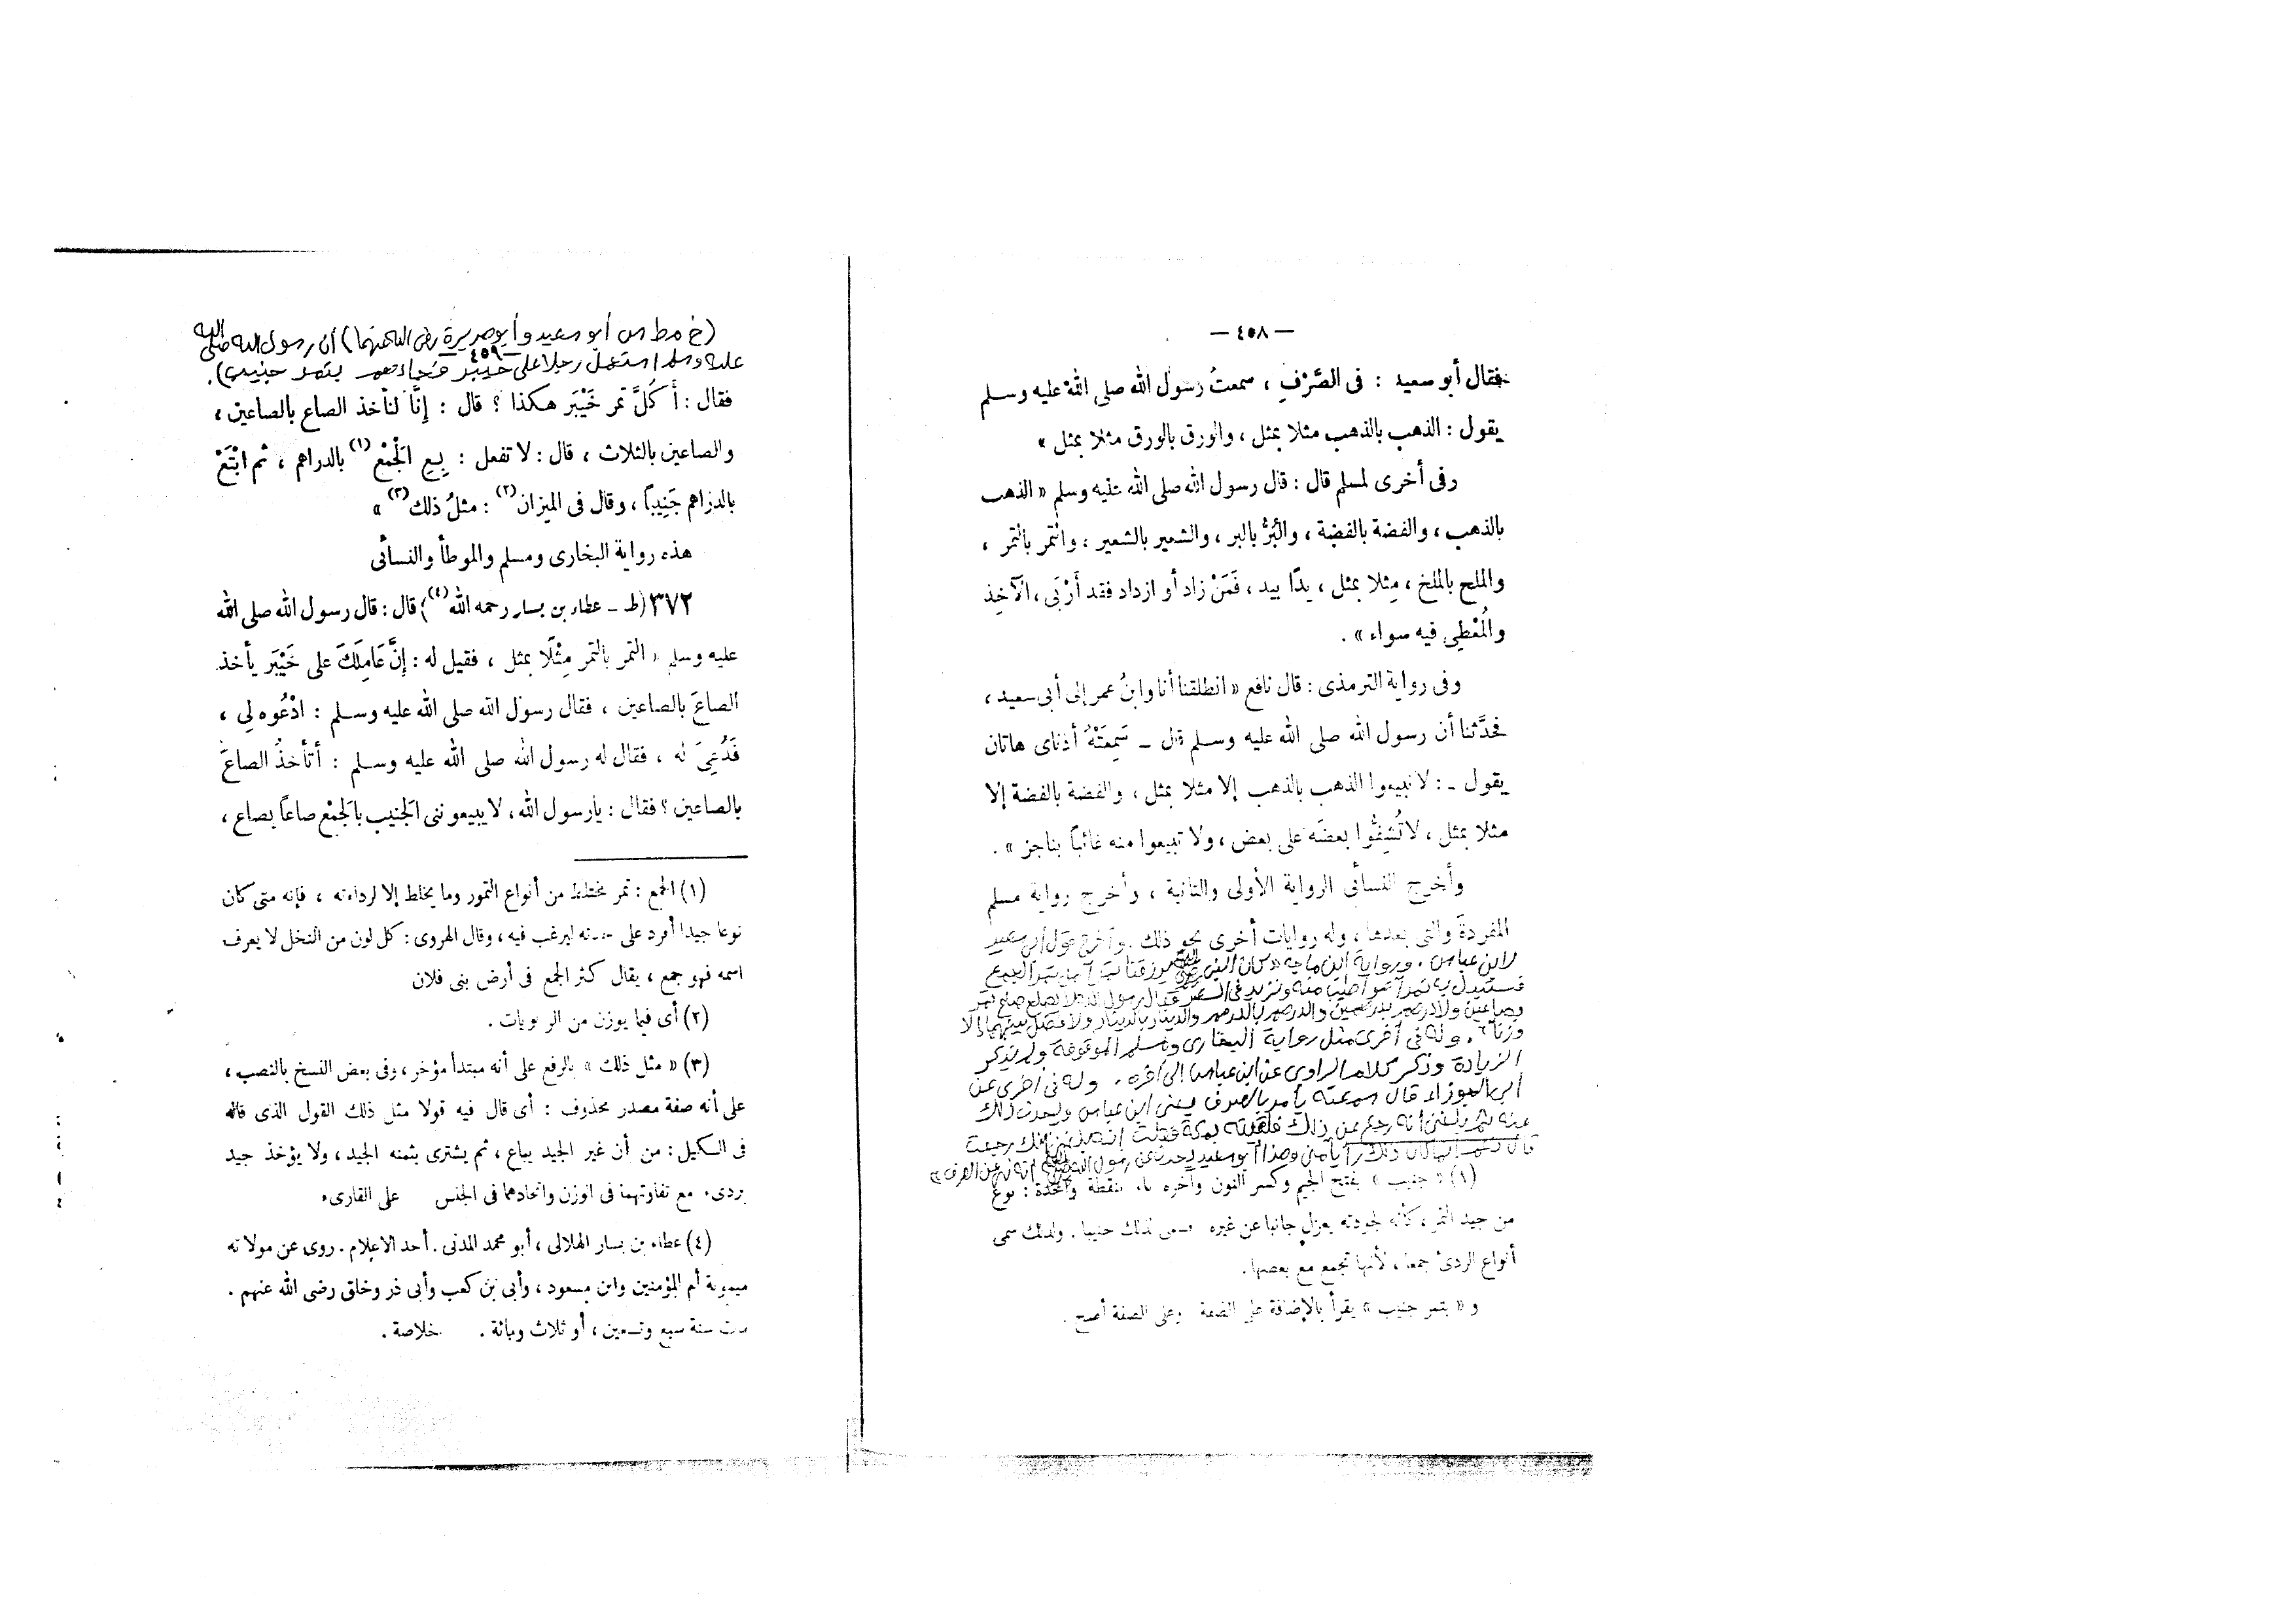 — ٤٥٨ —
فقال أبو سعيد : فى الصَّرْفِ ، سمعتُ رسول الله صلى اللهُ عليه وسلم
يقول : الذهب بالذهب مثلا بمثل ، والورق بالورق مثلا بمثل »
وفى أخرى لمسلم قال : قال رسول الله صلى الله عليه وسلم « الذهب
بالذهب ، والفضة بالفضة ، والبُرُّ بالبر ، والشعير بالشعير ، والتمر بالتمر ،
والملح بالملح ، مِثلا بمثل ، يدًا بيد ، فَمَنْ زاد أو ازداد فقد أَرْبَى ، الآخِذ
والمُعْطِى فيه سواء » .
وفى رواية الترمذى : قال نافع « انطلقنا أنا وابنُ عمر إلى أبى سعيد ،
فحدَّثنا أن رسول الله صلى الله عليه وسلم قال ـ سَمِعَتْهُ أذناى هاتان
يقول ـ : لا تبيعوا الذهب بالذهب إلا مثلا بمثل ، والفضة بالفضة إلا
مثلا بمثل ، لا تُشِفُّوا بعضَه على بعض ، ولا تبيعوا منه غائبًا بناجز » .
وأخرج النسائى الرواية الأولى والثانية ، وأخرج رواية مسلم
المفردةَ والتى بعدها ، وله روايات أخرى نحو ذلك . وأخرج قول أبى سعيد
لابن عباس . ورواية ابن ماجه « كان النبى يرزقنا تمرا من تمر الجمع
فنستبدل به تمرا هو أطيب منه ونزيد فى السعر فقال رسول الله لا يصلح صاع تمر
بصاعين ولا درهم بدرهمين والدرهم بالدرهم والدينار بالدينار ولا فضل بينهما إلا
وزنا » . وله فى أخرى مثل رواية البخارى ومسلم الموقوفة ولم يذكر
الزيادة وذكر كلام الراوى عن ابن عباس إلى آخره . وله فى أخرى عن
أبى الجوزاء قال سمعته يأمر بالصرف يعنى ابن عباس ويحدث ذلك
عنه ثم بلغنى أنه رجع عن ذلك فلقيته بمكة فقلت انه بلغنى انك رجعت
قال نعم إنما كان ذلك رأيا منى وهذا أبو سعيد يحدث عن رسول الله انه نهى عن الصرف »
(١) « جنيب » بفتح الجيم وكسر النون وآخره باء بنقطة واحدة : نوع
من جيد التمر ، كأنه لجودته يعزل جانبا عن غيره فسمى لذلك جنيبا . ولذلك سمى
أنواع الردئ جمعا ، لأنها تجمع مع بعضها .
و « بتمر جنيب » يقرأ بالإضافة على الصفة وعلى الصفة أصح .
(خ م ط س أبو سعيد وأبو هريرة رضى الله عنهما) أن رسول الله صلى الله
— ٤٥٩ —
عليه وسلم استعمل رجلا على خيبر فجاءهم بتمر جنيب(١) .
فقال : أَكُلَّ تمر خَيْبَر هكذا ؟ قال : إنَّا لنأخذ الصاع بالصاعين ،
والصاعين بالثلاث ، قال : لا تفعل : بِعِ الْجَمْعَ(١) بالدراهم ، ثم ابْتَعْ
بالدراهم جَنِيبًا ، وقال فى الميزان(٢) : مثلُ ذلك(٣) »
هذه رواية البخارى ومسلم والموطأ والنسائى
٣٧٢ (ط ـ عطاء بن يسار رحمه الله(٤)) قال : قال رسول الله صلى الله
عليه وسلم « التمر بالتمر مِثْلًا بمثل ، فقيل له : إنَّ عَامِلَكَ على خَيْبَر يأخذ
الصاعَ بالصاعين ، فقال رسول الله صلى الله عليه وسلم : ادْعُوه لِى ،
فَدُعِىَ له ، فقال له رسول الله صلى الله عليه وسلم : أتأخذُ الصاعَ
بالصاعين ؟ فقال : يارسول الله ، لا يبيعوننى الجَنيب بالجَمْع صاعًا بصاع ،
(١) الجمع : تمر مختلط من أنواع التمور وما يخلط إلا لرداءته ، فإنه متى كان
نوعا جيدا أفرد على حدته ليرغب فيه ، وقال الهروى : كل لون من النخل لا يعرف
اسمه فهو جمع ، يقال كثر الجمع فى أرض بنى فلان
(٢) أى فيما يوزن من الربويات .
(٣) « مثل ذلك » بالرفع على أنه مبتدأ مؤخر ، وفى بعض النسخ بالنصب ،
على أنه صفة مصدر محذوف : أى قال فيه قولا مثل ذلك القول الذى قاله
فى الكيل : من أن غير الجيد يباع ، ثم يشترى بثمنه الجيد ، ولا يؤخذ جيد
بردىء مع تفاوتهما فى الوزن واتحادهما فى الجنس على القارىء
(٤) عطاء بن يسار الهلالى ، أبو محمد المدنى . أحد الاعلام . روى عن مولاته
ميمونة أم المؤمنين وابن مسعود ، وأبى بن كعب وأبى ذر وخلق رضى الله عنهم .
مات سنة سبع وتسعين ، أو ثلاث ومائة . خلاصة .